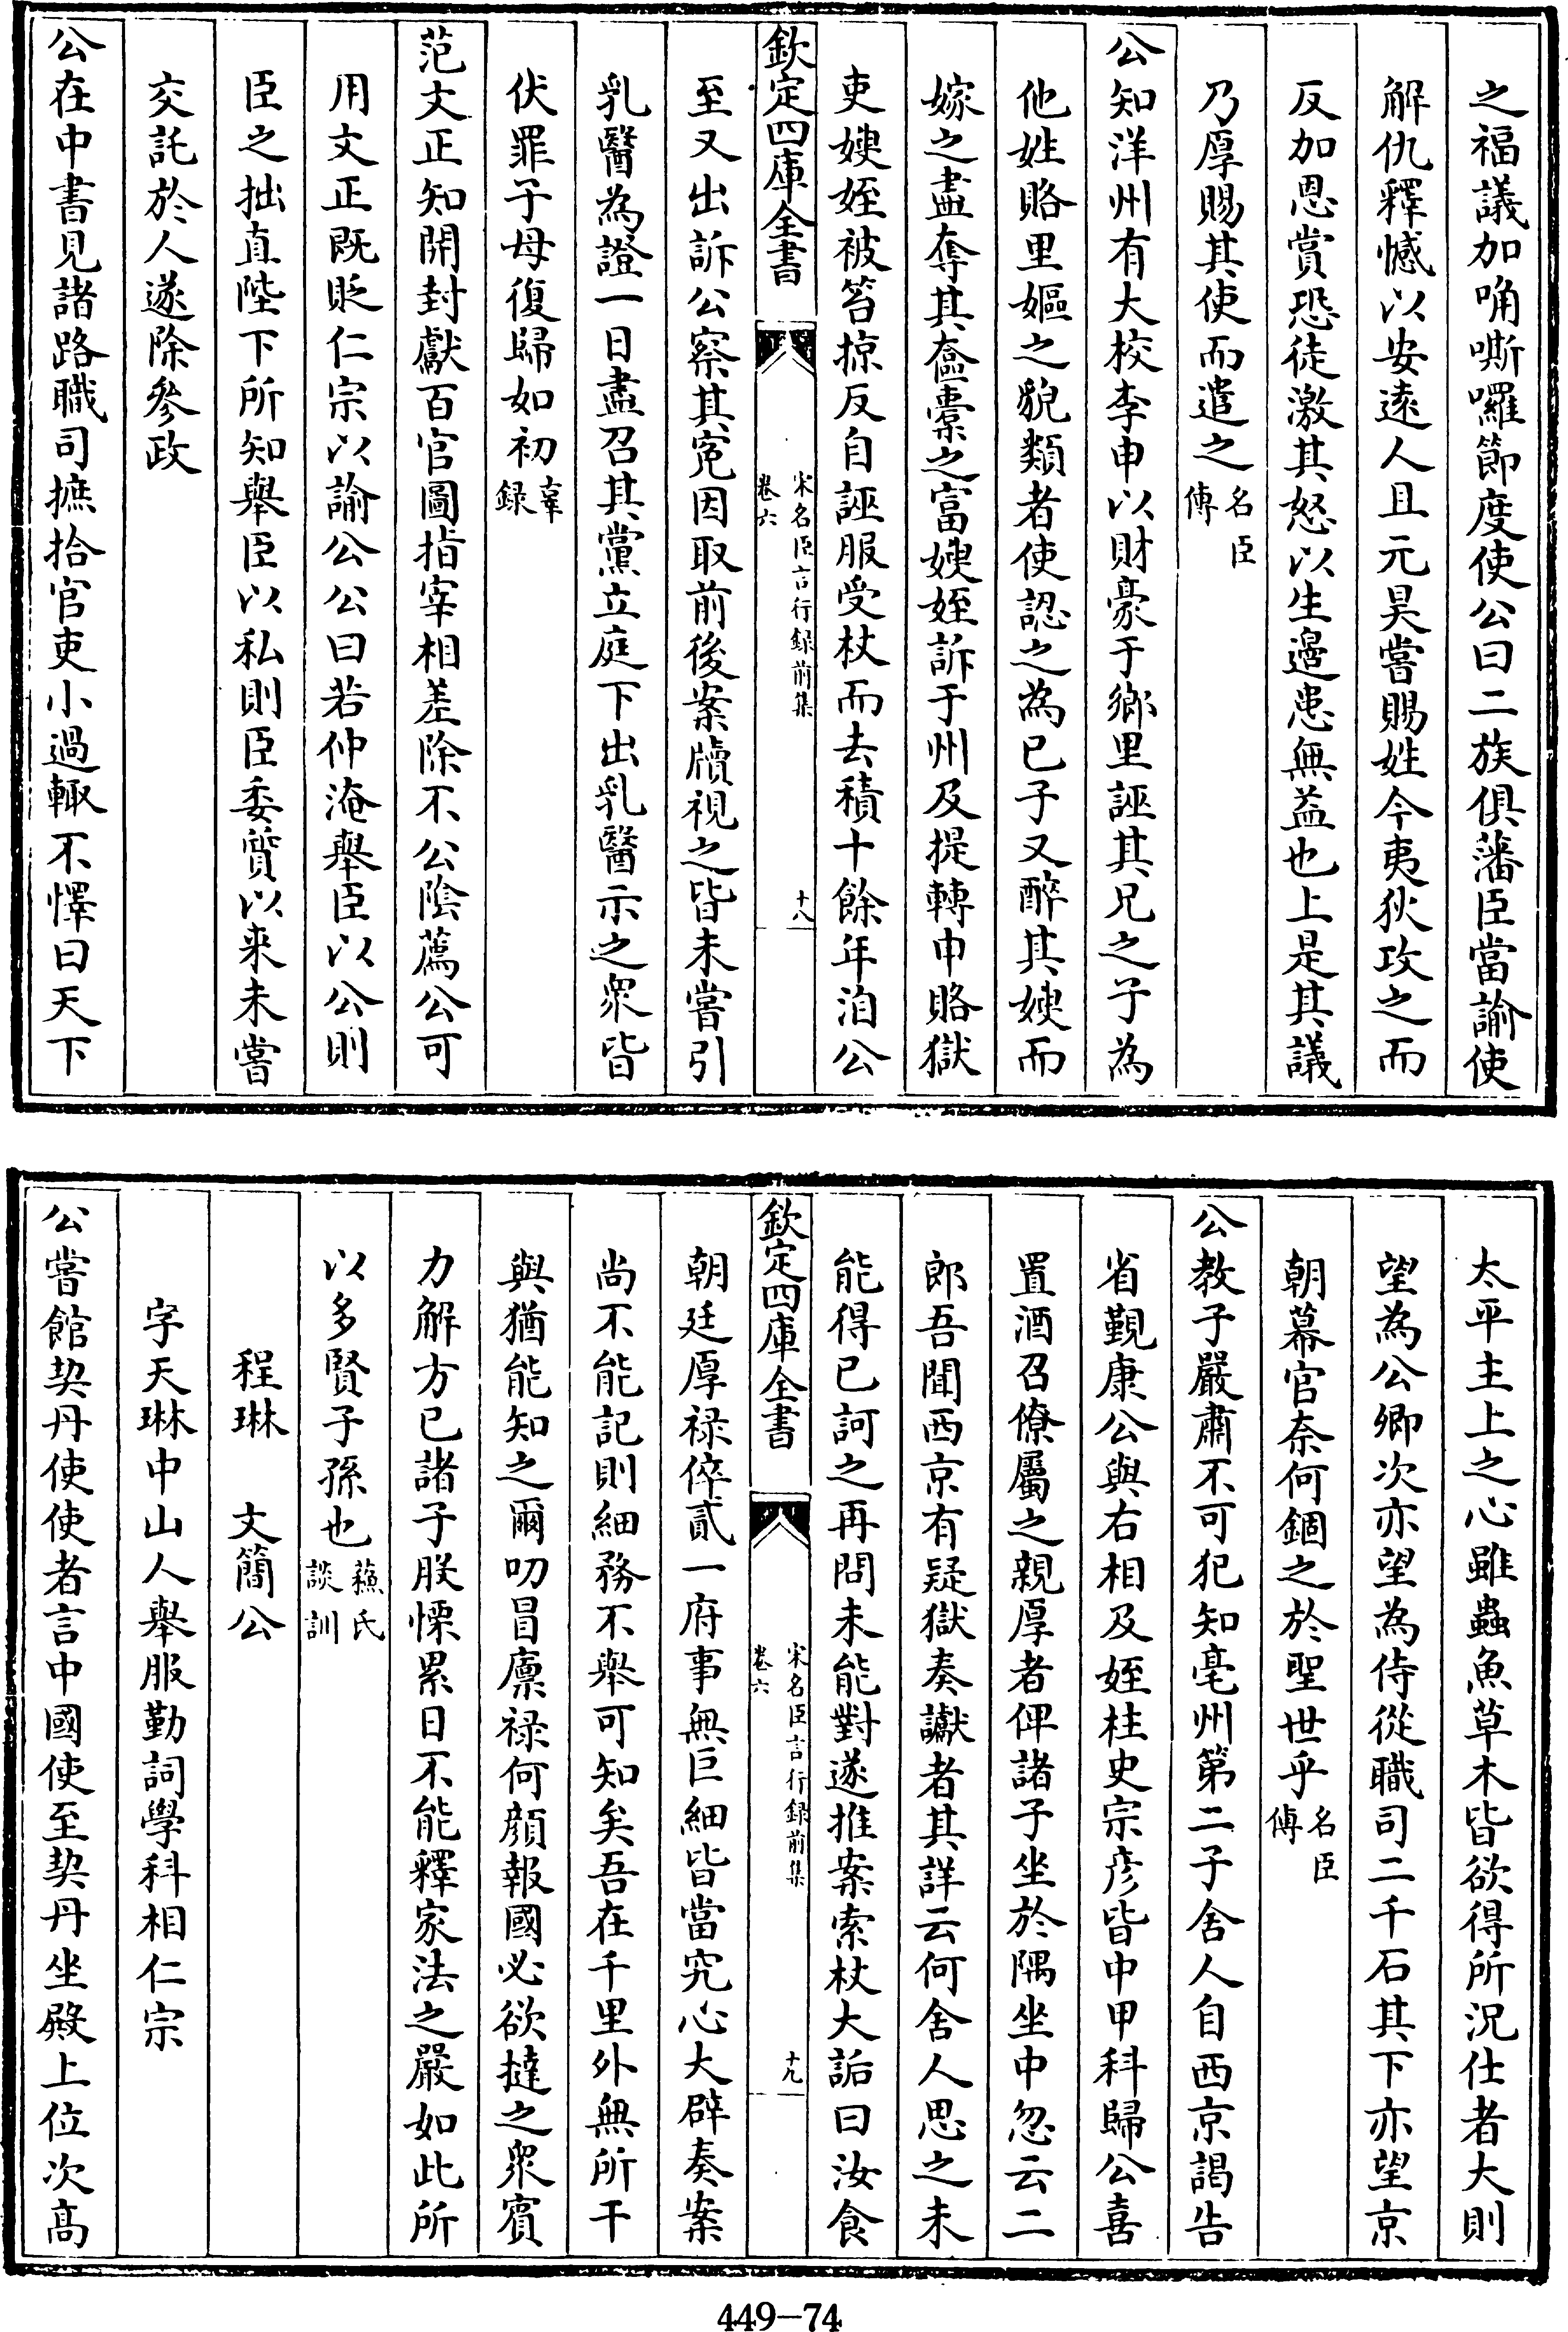 之福議加唃嘶囉節度使公曰二族俱藩臣當諭使
解仇釋憾以安逺人且元昊嘗賜姓今夷狄攻之而
反加恩賞恐徒激其怒以生邉患無益也上是其議
乃厚賜其使而遣之名臣傳
公知洋州有大校李申以財豪于鄉里誣其兄之子為
他姓賂里嫗之貌類者使認之為已子又醉其嫂而
嫁之盡奪其奩橐之富嫂姪訴于州及提轉申賂獄
吏嫂姪被笞掠反自誣服受杖而去積十餘年洎公
欽定四庫全書
宋名臣言行録前集
卷六
十八
至又出訴公察其寃因取前後案牘視之皆未嘗引
乳醫為證一日盡召其黨立庭下出乳醫示之衆皆
伏罪子母復歸如初韋録
范文正知開封獻百官圖指宰相差除不公陰薦公可
用文正既貶仁宗以諭公公曰若仲淹舉臣以公則
臣之拙直陛下所知舉臣以私則臣委質以来未嘗
交託於人遂除參政
公在中書見諸路職司摭拾官吏小過輙不懌曰天下
太平主上之心雖蟲魚草木皆欲得所況仕者大則
望為公卿次亦望為侍從職司二千石其下亦望京
朝幕官奈何錮之於聖世乎名臣傳
公教子嚴肅不可犯知亳州第二子舍人自西京謁告
省覲康公與右相及姪柱史宗彦皆中甲科歸公喜
置酒召僚屬之親厚者俾諸子坐於隅坐中忽云二
郎吾聞西京有疑獄奏讞者其詳云何舍人思之未
能得已訶之再問未能對遂推案索杖大詬曰汝食
欽定四庫全書
宋名臣言行録前集
卷六
十九
朝廷厚禄倅貳一府事無巨細皆當究心大辟奏案
尚不能記則細務不舉可知矣吾在千里外無所干
與猶能知之爾叨冒廪禄何顔報國必欲撻之衆賓
力解方已諸子股慄累日不能釋家法之嚴如此所
以多賢子孫也蘓氏談訓
程琳　文簡公
字天琳中山人舉服勤詞學科相仁宗
公嘗館契丹使使者言中國使至契丹坐殿上位次髙
449-74